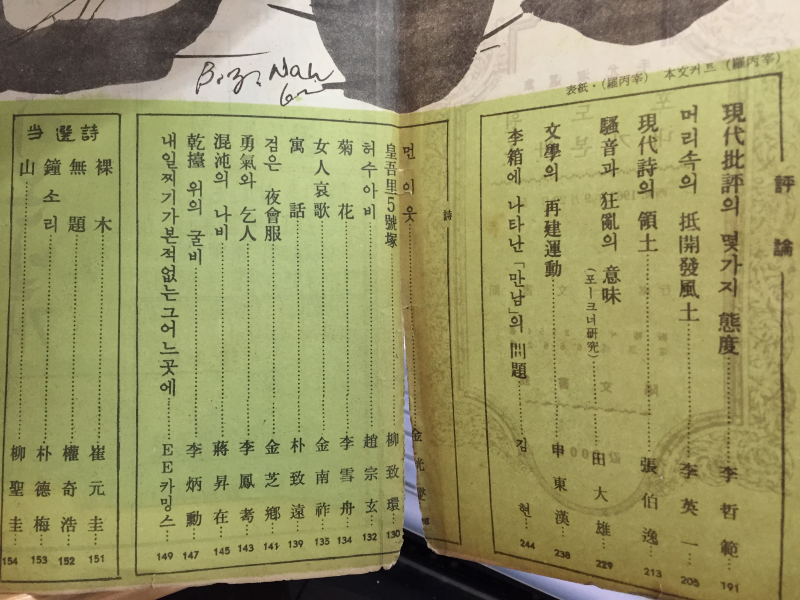 B.g. Nah
表紙·(羅丙宰) 本文커트 (羅丙宰)
評論
現代批評의 몇가지 態度……李哲範 191
머리속의 抵開發風土……李英一 205
現代詩의 領土……張伯逸 213
騷音과 狂亂의 意味 (포ー크너研究)……田大雄 229
文學의 再建運動……申東漢 238
李箱에 나타난 「만남」의 問題……김현 244
詩
먼 이웃……金光
皇吾里5號塚……柳致環 130
허수아비……趙宗玄 132
菊花……李雪舟 134
女人哀歌……金南祚 135
寓話……朴致遠 139
검은 夜會服……金芝鄕 141
勇氣와 乞人……李鳳考 143
混沌의 나비……蔣昇在 145
乾擡 위의 굴비……李炳勳 147
내일찌기가본적없는그어느곳에……EE카밍스 149
当選詩
裸木……崔元圭 151
無題……權奇浩 152
鐘소리……朴德梅 153
山……柳聖圭 154